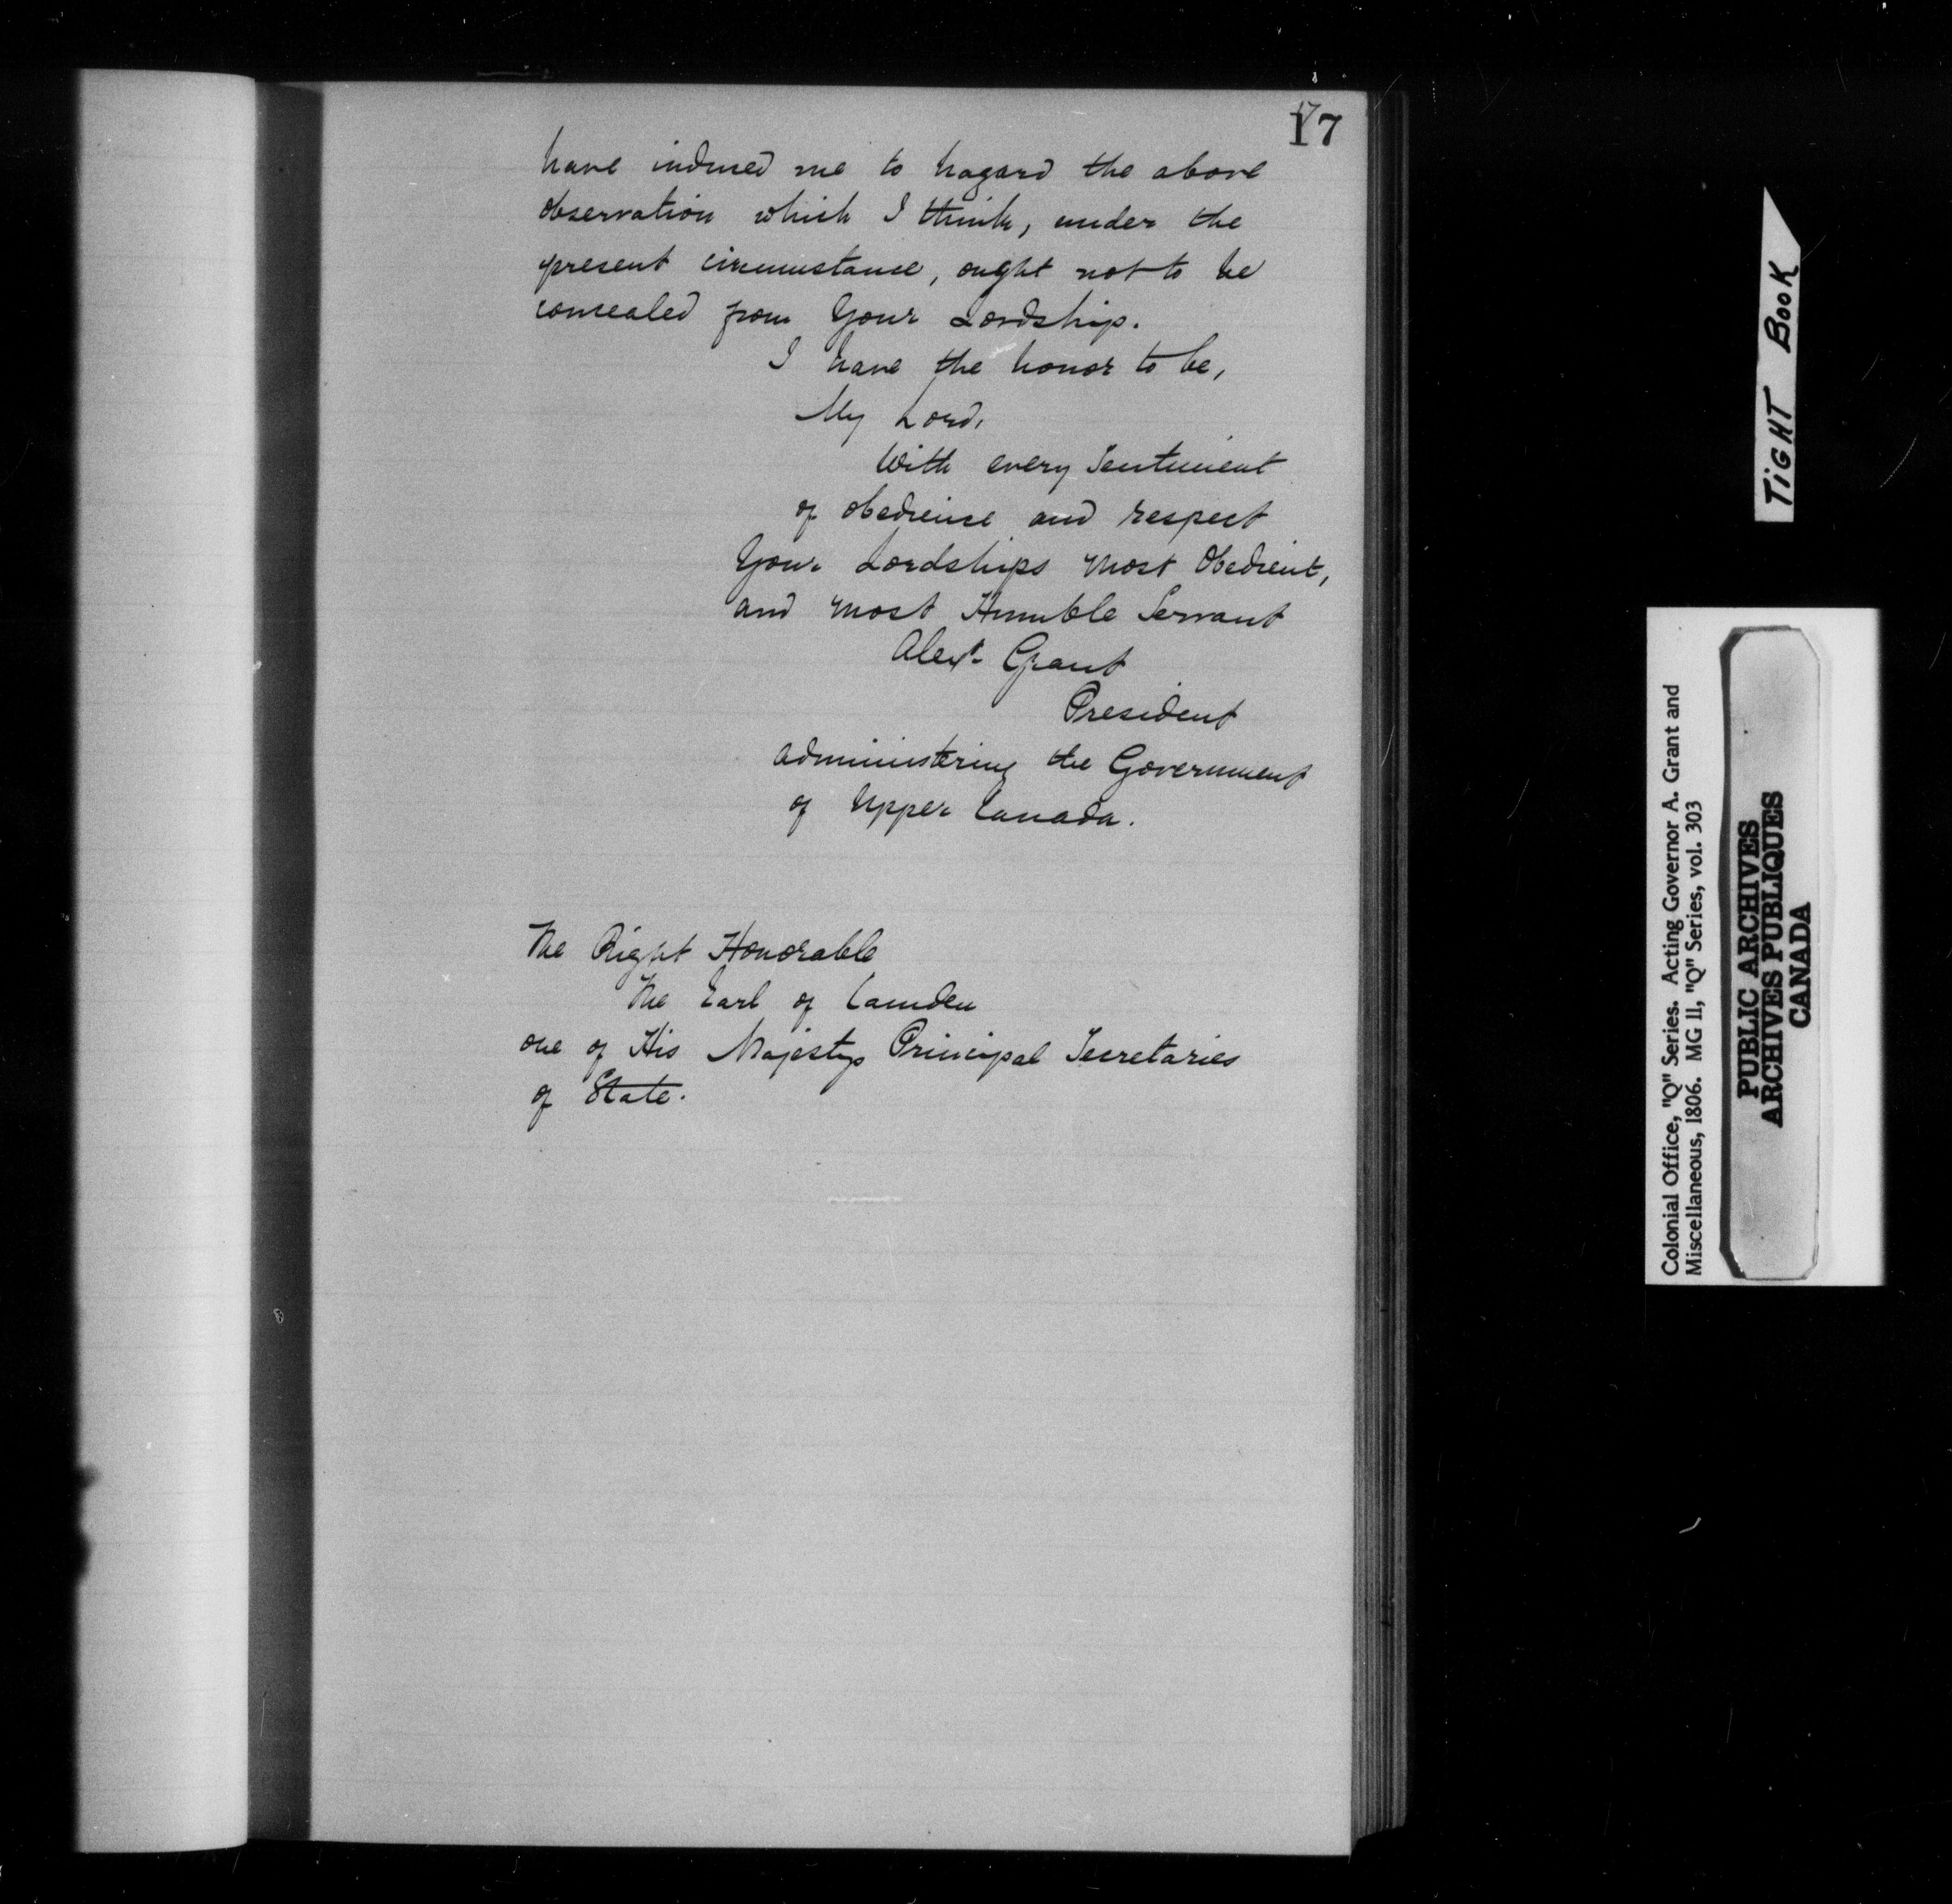 17
have induced me to hazard the above
observation which I think, under the
present circumstance, ought not to be
concealed from Your Lordship.
I have the honor to be,
My Lord,
With every Sentiment
of obedience and respect
Your Lordships most Obedient,
and most Humble Servant
Alexr Grant
President
administering the Government
of Upper Canada.
The Right Honorable
The Earl of Camden
one of His Majestys Principal Secretaries
of State.
TIGHT BOOK
Colonial Office, "Q" Series. Acting Governor A. Grant and
Miscellaneous, 1806. MG 11, "Q" Series, vol. 303
PUBLIC ARCHIVES
ARCHIVES PUBLIQUES
CANADA